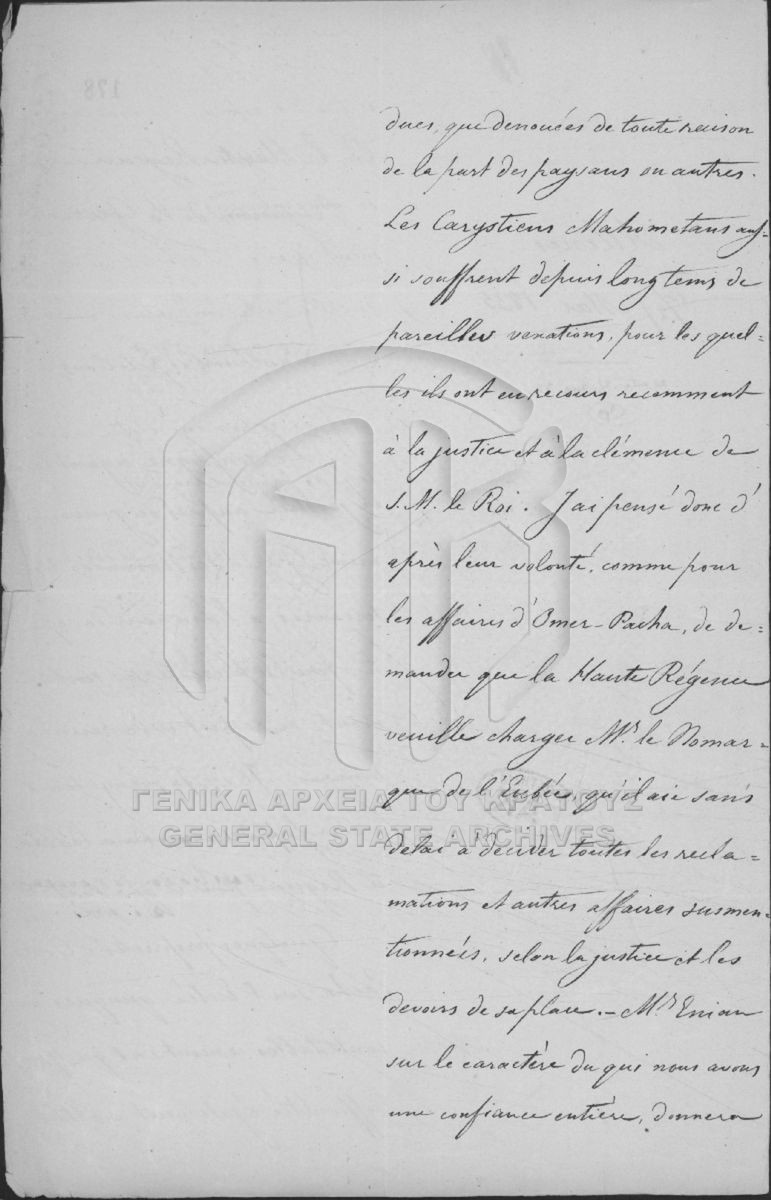 dues, que denouées de toute raison
de la part des paysans ou autres.
Les Carystiens Mahometans aus-
si souffrent depuis longtems de
pareilles vexations, pour les quel=
les ils ont eu recours recemment
à la justice et à la clémence de
S. M. le Roi. J'ai pensé donc d'
après leur volonté, comme pour
les affaires d'Omer-Pacha, de de=
mander que la Haute Régence
veuille charger Mr le Nomar=
que de l'Eubée qu'il aie sans
delai à décider toutes les recla=
mations et autres affaires susmen=
tionnées, selon la justice et les
devoirs de sa place. – Mr Enian
sur le caractère du qui nous avons
une confiance entière, donnera
ΓΕΝΙΚΑ ΑΡΧΕΙΑ ΤΟΥ ΚΡΑΤΟΥΣ
GENERAL STATE ARCHIVES
178